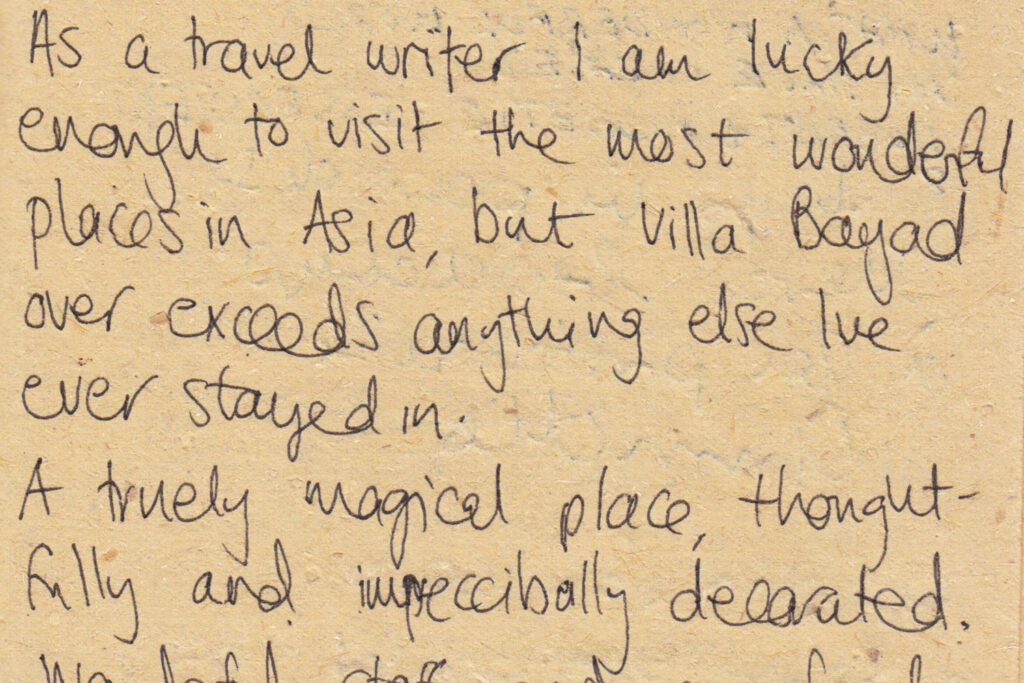 As a travel writer I am lucky
enough to visit the most wonderful
places in Asia, but Villa Bayad
over exceeds anything else Ive
ever stayed in.
A truely magical place, thought-
fully and impeccibally decorated.